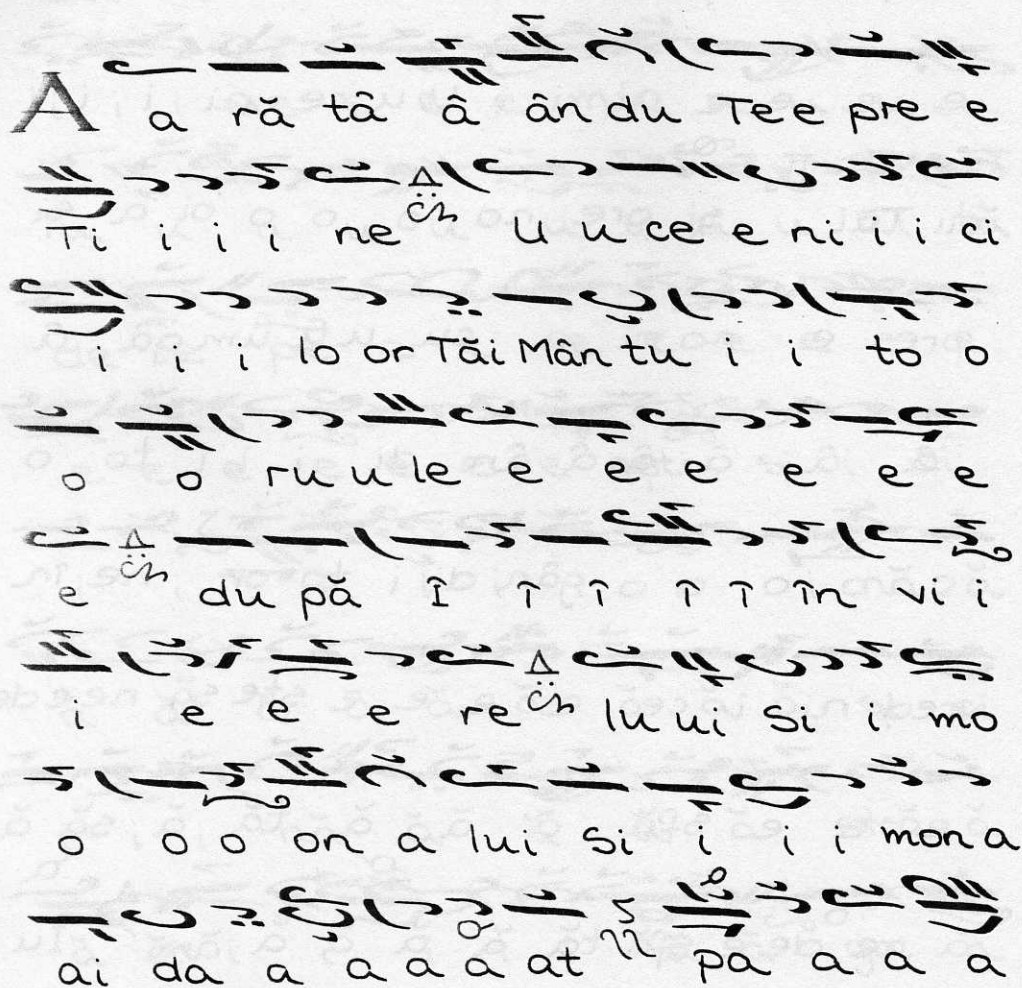 A a ră tâ â ân du Te e pre e
Ti i i i ne u u ce e ni i i ci
i i i lo or Tăi Mân tu i i to o
o o ru u le e e e e e e
e du pă Î î î î î în vi i
i e e e re lu ui Si i mo
o o o on a lui Si i i i mon a
ai da a a a a at pa a a a